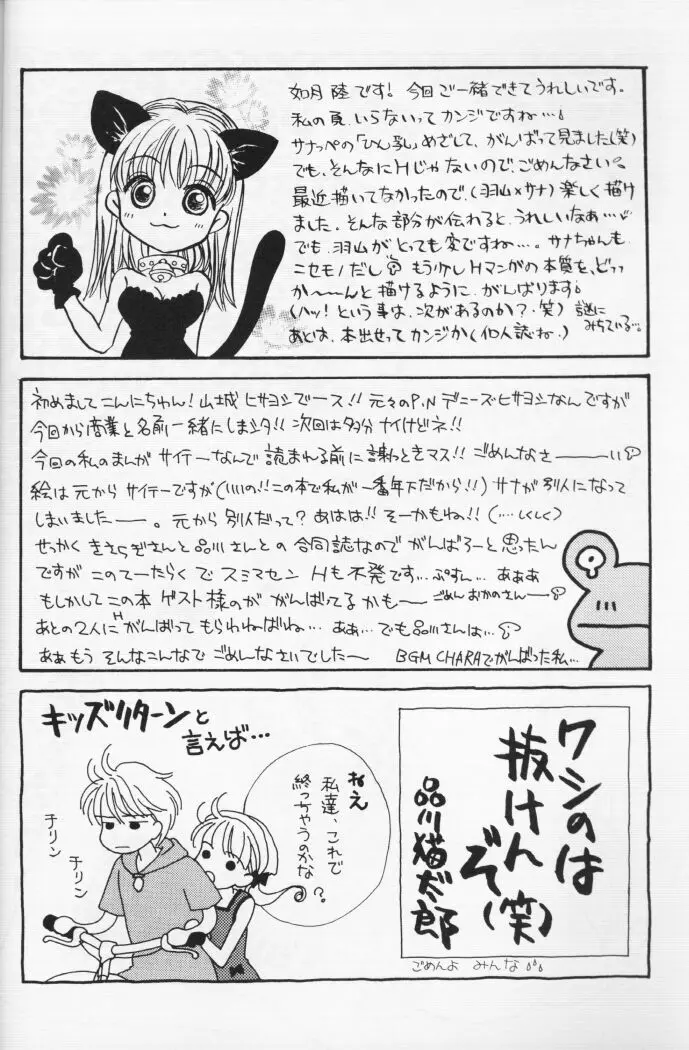 如月 陸です! 今回ご一緒できてうれしいです。
私の頁、いらないってカンジですね…!
サナッペの「ひん乳」めざして、がんばって見ました(笑)
でも、そんなにHじゃないので、ごめんなさい
最近描いてなかったので、(羽山×サナ)楽しく描け
ました。そんな部分が伝わると、うれしいなぁ…
でも、羽山がとっても変ですね…。サナちゃんも
ニセモノだし もう少しHマンガの本質を、どっ
か〜〜んと描けるように、がんばります
(ハッ! という事は、次があるのか?・笑) 謎に
みちている…
あとは、本出せってカンジか(個人誌ね・)
初めましてこんにちゅん! 山城 ヒサヨシでース!! 元々のP.N デニーズヒサヨシなんですが
今回から商業と名前一緒にしまシタ!! 次回は多分 ナイけどネ!!
今回の私のまんが サイテーなんで 読まれる前に 謝っときマス!! ごめんなさーーーい
絵は元から サイテーですが(いいの!!この本で私が一番年下だから!!) サナが別人になって
しまいましたー。元から別人だって? あはは!! そーかもね!! (…しくしく)
せっかく きさらぎさんと品川さんとの 合同誌なので がんばろーと思たん
ですが このてーたらくで スミマセン Hも不発です…ぷすん… あぁぁ
もしかして この本 ゲスト様のが がんばってるかも〜 ごめん おかのさん〜
あとの2人に H がんばって もらわねばね… ああ… でも品川さんは…
ああもう そんなこんなで ごめんなさいでした〜 BGM CHARAでがんばった私…
キッズリターンと
言えば…
ねえ
私達、これで
終っちゃうのかな
?
チリン
チリン
ワシのは
抜けん
ぞ(笑)
品川猫太郎
ごめんよ みんな